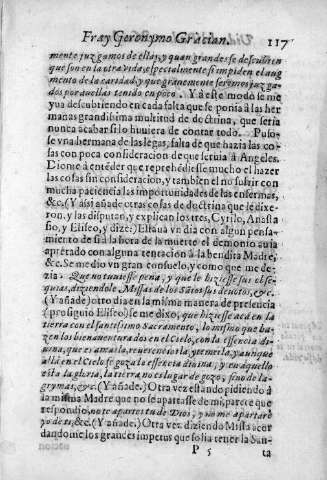 Fray Geronymo Gracian. 117
mente juzgamos de ellas, y quan grandes se descubren
que son en la otra vida, especialmente si impiden el aug
mento de la caridad, y que grauemente seremos juzga-
dos por auellas tenido en poco. Y a este modo se me
yua descubriendo en cada falta que se ponia a las her
manas grandissima multitud de doctrina, que seria
nunca acabar si lo huuiera de contar todo. Puso-
se vna hermana de las legas, falta de que hazia las co-
sas con poca consideracion de que seruia a Angeles.
Diome a entēder que reprehēdiesse mucho el hazer
las cosas sin consideracion, y tambien el no sufrir con
mucha paciencia las importunidades de las enfermas,
&c. (Y assi añade otras cosas de doctrina que le dixe-
ron, y las disputan, y explican los tres, Cyrilo, Anasta
sio, y Eliseo, y dize:) Estaua vn dia con algun pensa-
miento de si a la hora de la muerte el demonio auia
apretado con alguna tentacion a la bendita Madre,
&c. Se me dio vn gran consuelo, y como que me de-
zia. Que no tuuiesse pena, y que le hiziesse sus obse-
quias, diziendole Missas de los Sātos sus deuotos, &c.
(Y añade) otro dia en la misma manera de presencia
(prosiguio Eliseo) se me dixo, que hiziesse acà en la
tierra con el santissimo Sacramento, lo mismo que ha-
zen los bienauenturados en el Cielo, con la essencia di-
uina, que es amarla, reuerenciarla, y temerla, y aunque
allà en el Cielo se goza la essencia diuina, y en aquello
està la gloria, la tierra no es lugar de gozo, sino de la-
grymas, &c. (Y añade.) Otra vez estando pidiendo à
la misma Madre que no se apartasse de mi, parece que
respondio, no te apartes tu de Dios, y no me apartarè
yo de ti, &c. (Y añade.) Otra vez diziendo Missa acor
dandome los grandes impetus que solia tener la San-
P 5 ta